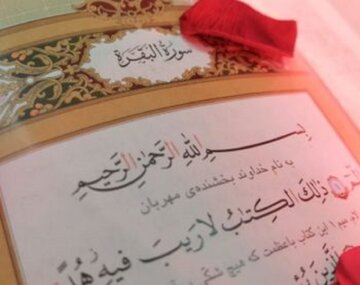 سورة البقرة
بسم الله الرحمن الرحيم
به نام خداوند بخشنده‌ی مهربان
ذلك الكتب لا ريب فيه هدى
این کتاب باعظمت که هیچ شکی
الذين